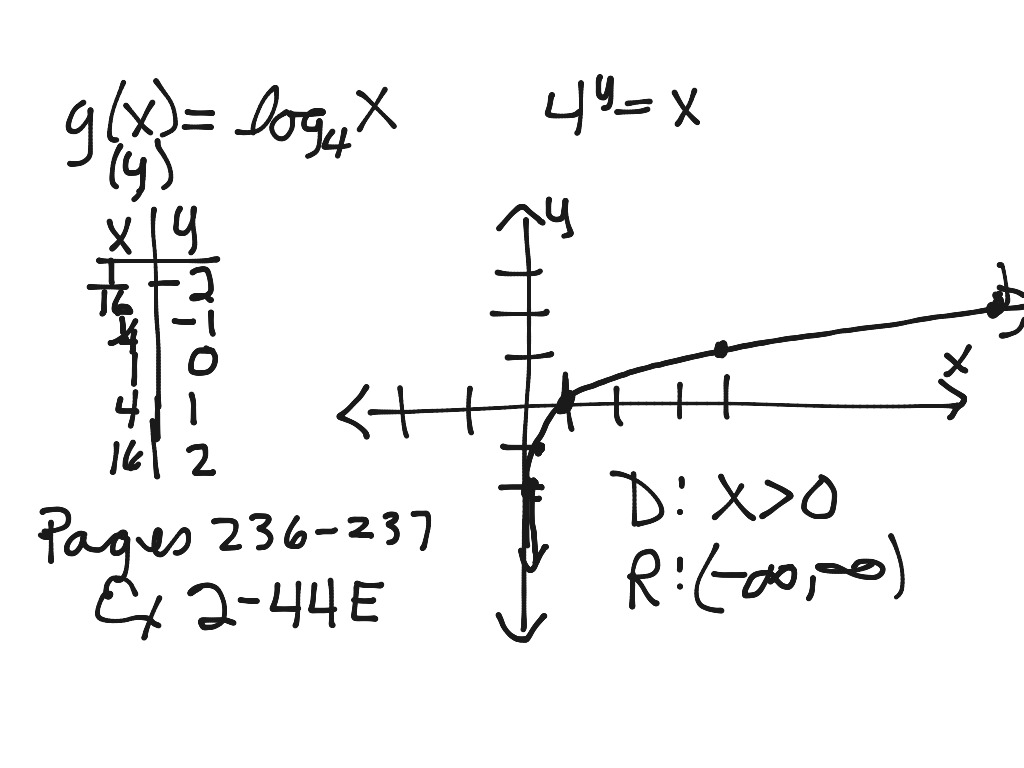 g(x) = log₄ x
(y)
4^y = x
x | y
1/16 | -2
1/4 | -1
1 | 0
4 | 1
16 | 2
y
x
D: x > 0
R: (-∞, ∞)
Pages 236-237
Ex 2-44E